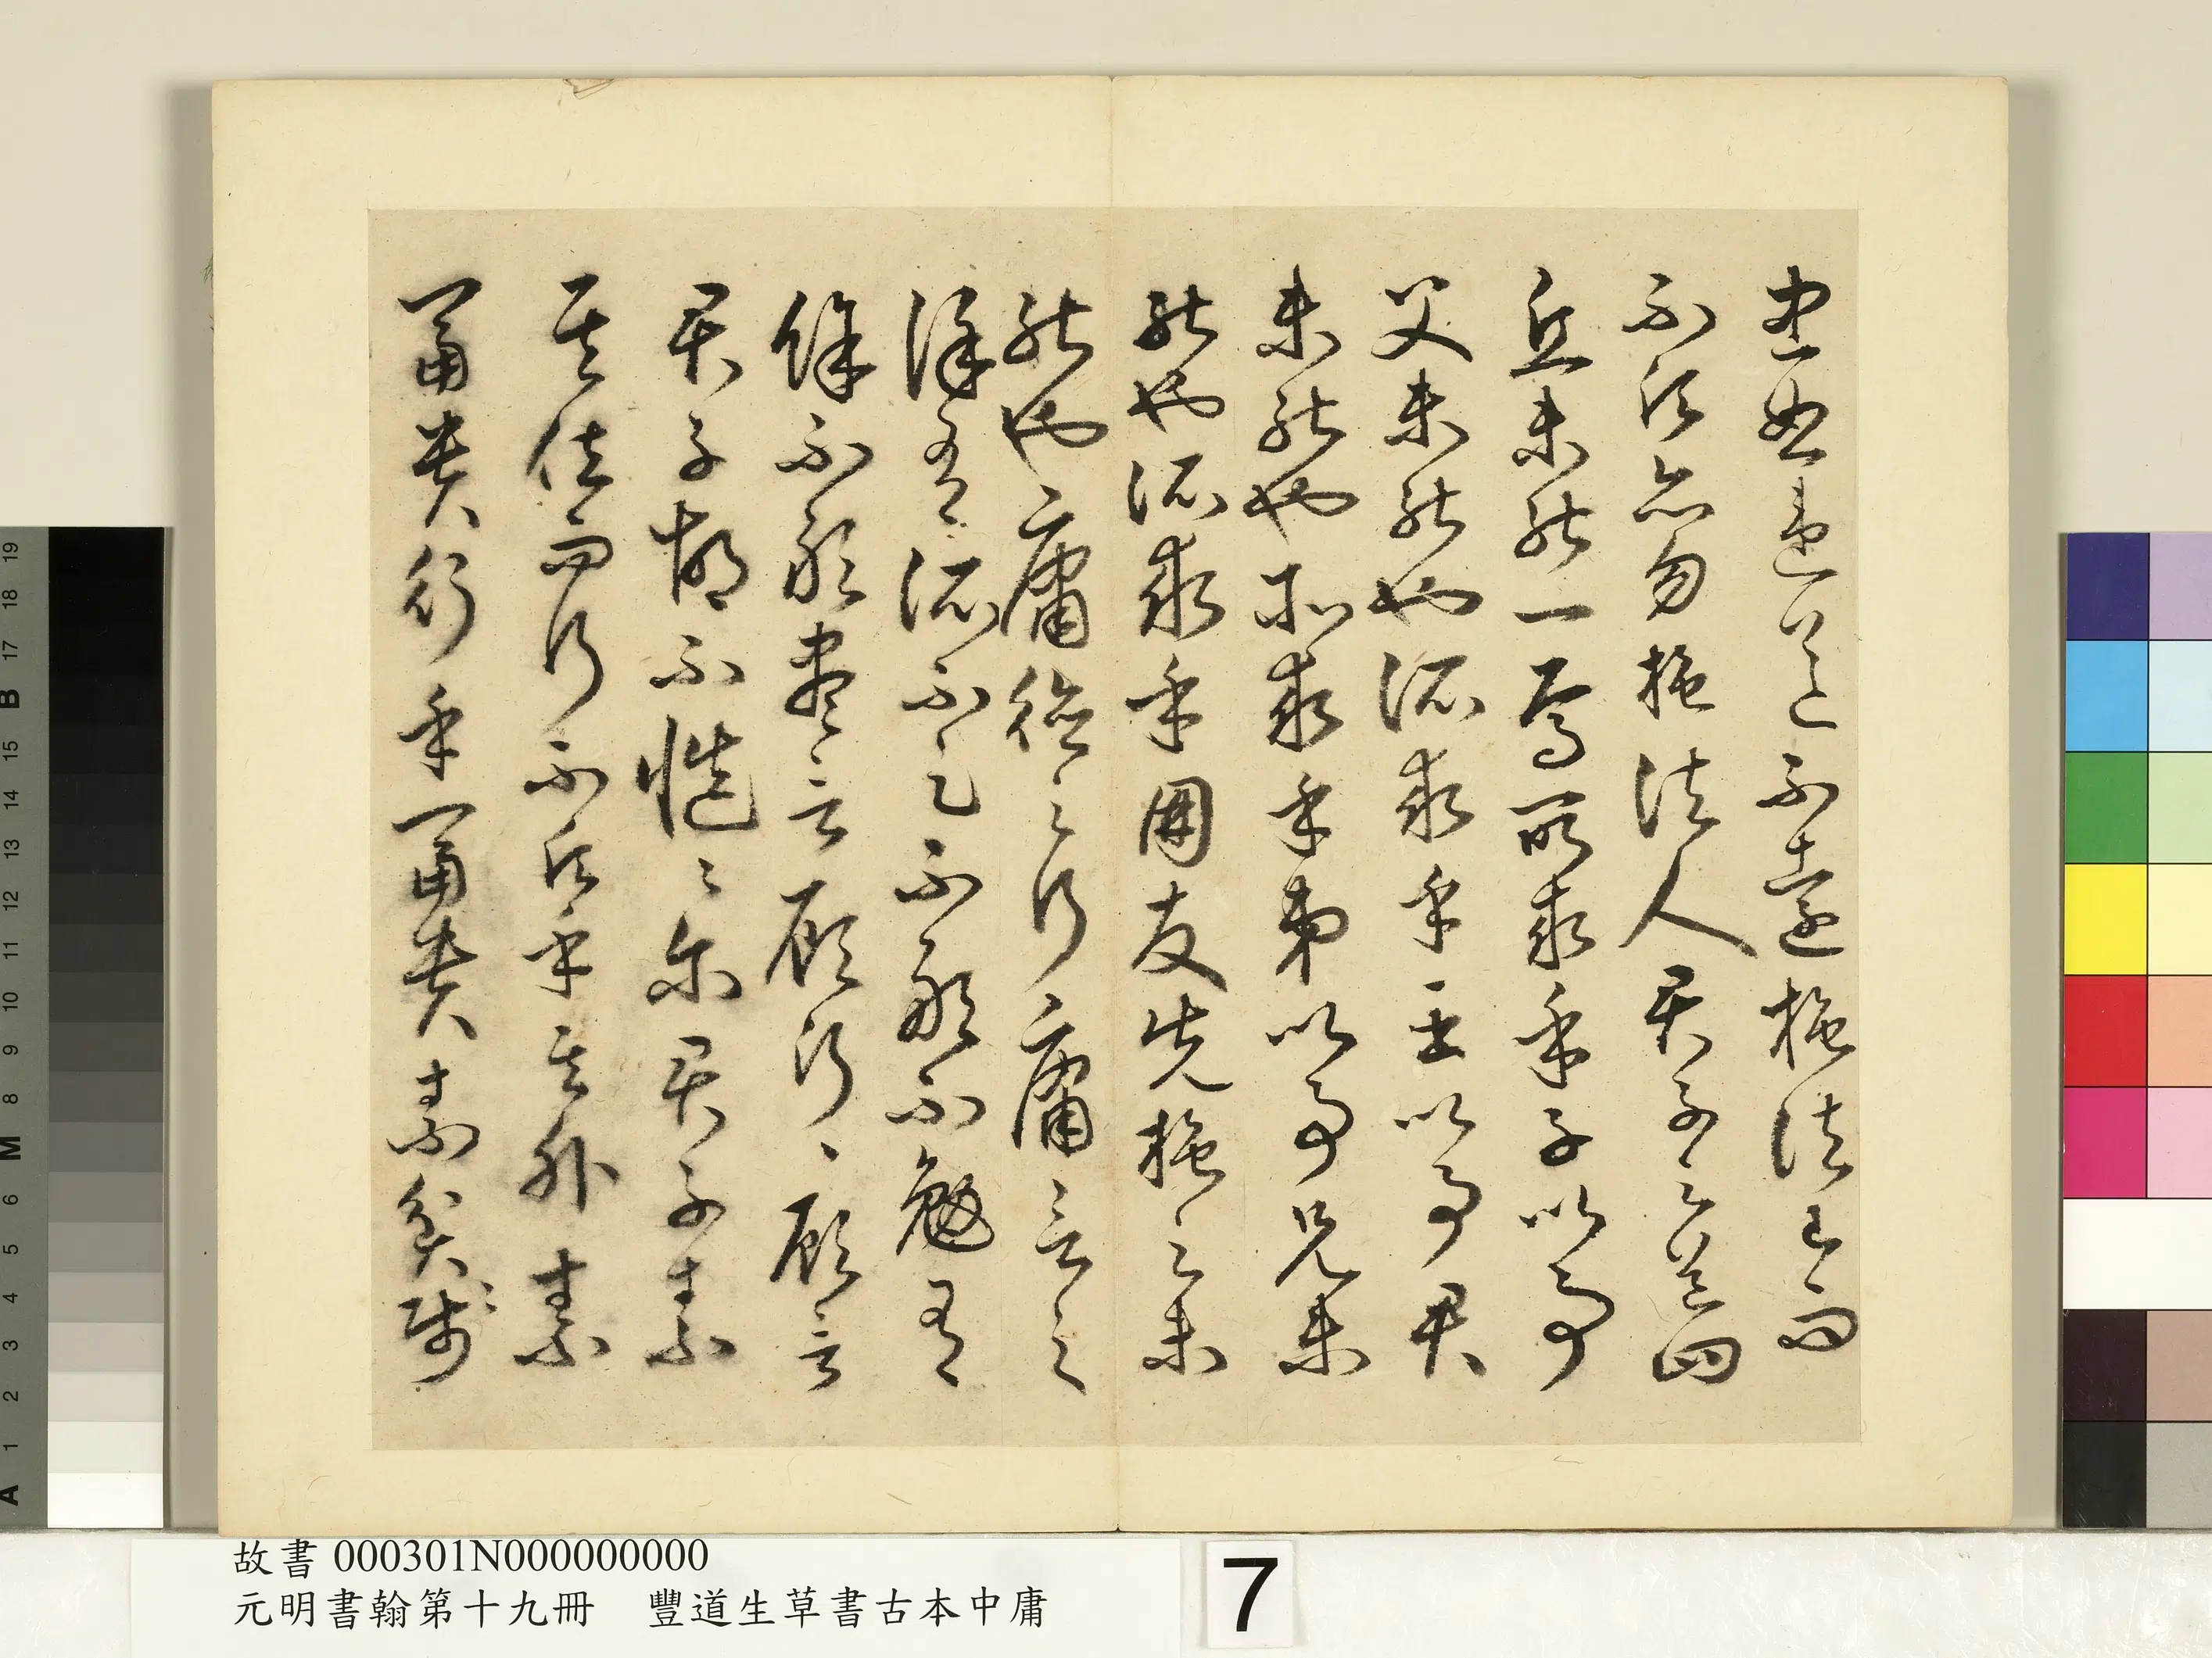 忠恕違道不遠施諸己而
不願亦勿施諸人君子之道四
丘未能一焉所求乎子以事
父未能也所求乎臣以事君
未能也所求乎弟以事兄未
能也所求乎朋友先施之未
能也庸德之行庸言之
謹有所不足不敢不勉有
餘不敢盡言顧行〻顧言
君子胡不慥〻爾君子素
其位而行不願乎其外素
富貴行乎富貴素貧賤
A 1 2 3 4 5 6 M 8 9 10 11 12 13 14 15 B 17 18 19
故書 000301N000000000
元明書翰第十九冊 豐道生草書古本中庸
7